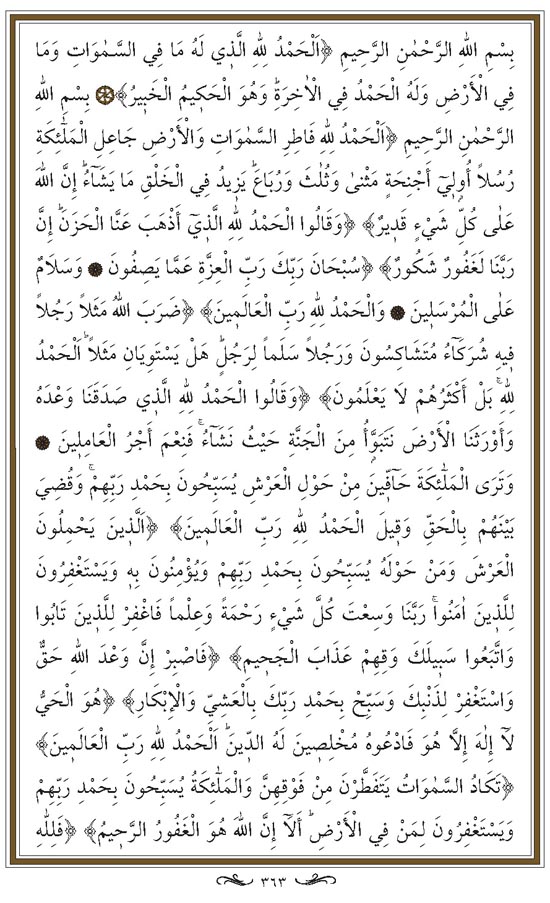 بِسْمِ اللهِ الرَّحْمٰنِ الرَّحيمِ ﴿اَلْحَمْدُ لِلهِ الَّذي لَهُ مَا فِي السَّمٰوَاتِ وَمَا
فِي الْأَرْضِ وَلَهُ الْحَمْدُ فِي الْاٰخِرَةِ وَهُوَ الْحَكيمُ الْخَبيرُ﴾ بِسْمِ اللهِ
الرَّحْمٰنِ الرَّحيمِ ﴿اَلْحَمْدُ لِلهِ فَاطِرِ السَّمٰوَاتِ وَالْأَرْضِ جَاعِلِ الْمَلٰٓئِكَةِ
رُسُلاً أُولي أَجْنِحَةٍ مَثْنٰى وَثُلٰثَ وَرُبَاعَ يَزيدُ فِي الْخَلْقِ مَا يَشَآءُ إِنَّ اللهَ
عَلٰى كُلِّ شَيْءٍ قَديرٌ﴾ ﴿وَقَالُوا الْحَمْدُ لِلهِ الَّذي أَذْهَبَ عَنَّا الْحَزَنَ إِنَّ
رَبَّنَا لَغَفُورٌ شَكُورٌ﴾ ﴿سُبْحَانَ رَبِّكَ رَبِّ الْعِزَّةِ عَمَّا يَصِفُونَ ● وَسَلَامٌ
عَلٰى الْمُرْسَلينَ ● وَالْحَمْدُ لِلهِ رَبِّ الْعَالَمينَ﴾ ﴿ضَرَبَ اللهُ مَثَلاً رَجُلاً
فيهِ شُرَكَآءُ مُتَشَاكِسُونَ وَرَجُلاً سَلَماً لِرَجُلٍ هَلْ يَسْتَوِيَانِ مَثَلاً اَلْحَمْدُ
لِلهِ بَلْ أَكْثَرُهُمْ لَا يَعْلَمُونَ﴾ ﴿وَقَالُوا الْحَمْدُ لِلهِ الَّذي صَدَقَنَا وَعْدَهُ
وَأَوْرَثَنَا الْأَرْضَ نَتَبَوَّأُ مِنَ الْجَنَّةِ حَيْثُ نَشَآءُ فَنِعْمَ أَجْرُ الْعَامِلينَ ●
وَتَرَى الْمَلٰٓئِكَةَ حَآفّينَ مِنْ حَوْلِ الْعَرْشِ يُسَبِّحُونَ بِحَمْدِ رَبِّهِمْ وَقُضِيَ
بَيْنَهُمْ بِالْحَقِّ وَقيلَ الْحَمْدُ لِلهِ رَبِّ الْعَالَمينَ﴾ ﴿اَلَّذينَ يَحْمِلُونَ
الْعَرْشَ وَمَنْ حَوْلَهُ يُسَبِّحُونَ بِحَمْدِ رَبِّهِمْ وَيُؤْمِنُونَ بِهِ وَيَسْتَغْفِرُونَ
لِلَّذينَ اٰمَنُوا رَبَّنَا وَسِعْتَ كُلَّ شَيْءٍ رَحْمَةً وَعِلْماً فَاغْفِرْ لِلَّذينَ تَابُوا
وَاتَّبَعُوا سَبيلَكَ وَقِهِمْ عَذَابَ الْجَحيمِ﴾ ﴿فَاصْبِرْ إِنَّ وَعْدَ اللهِ حَقٌّ
وَاسْتَغْفِرْ لِذَنْبِكَ وَسَبِّحْ بِحَمْدِ رَبِّكَ بِالْعَشِيِّ وَالْإِبْكَارِ﴾ ﴿هُوَ الْحَيُّ
لَآ إِلٰهَ إِلَّا هُوَ فَادْعُوهُ مُخْلِصينَ لَهُ الدّينَ اَلْحَمْدُ لِلهِ رَبِّ الْعَالَمينَ﴾
﴿تَكَادُ السَّمٰوَاتُ يَتَفَطَّرْنَ مِنْ فَوْقِهِنَّ وَالْمَلٰٓئِكَةُ يُسَبِّحُونَ بِحَمْدِ رَبِّهِمْ
وَيَسْتَغْفِرُونَ لِمَنْ فِي الْأَرْضِ أَلَآ إِنَّ اللهَ هُوَ الْغَفُورُ الرَّحيمُ﴾ ﴿فَلِلّٰهِ
٣٦٣